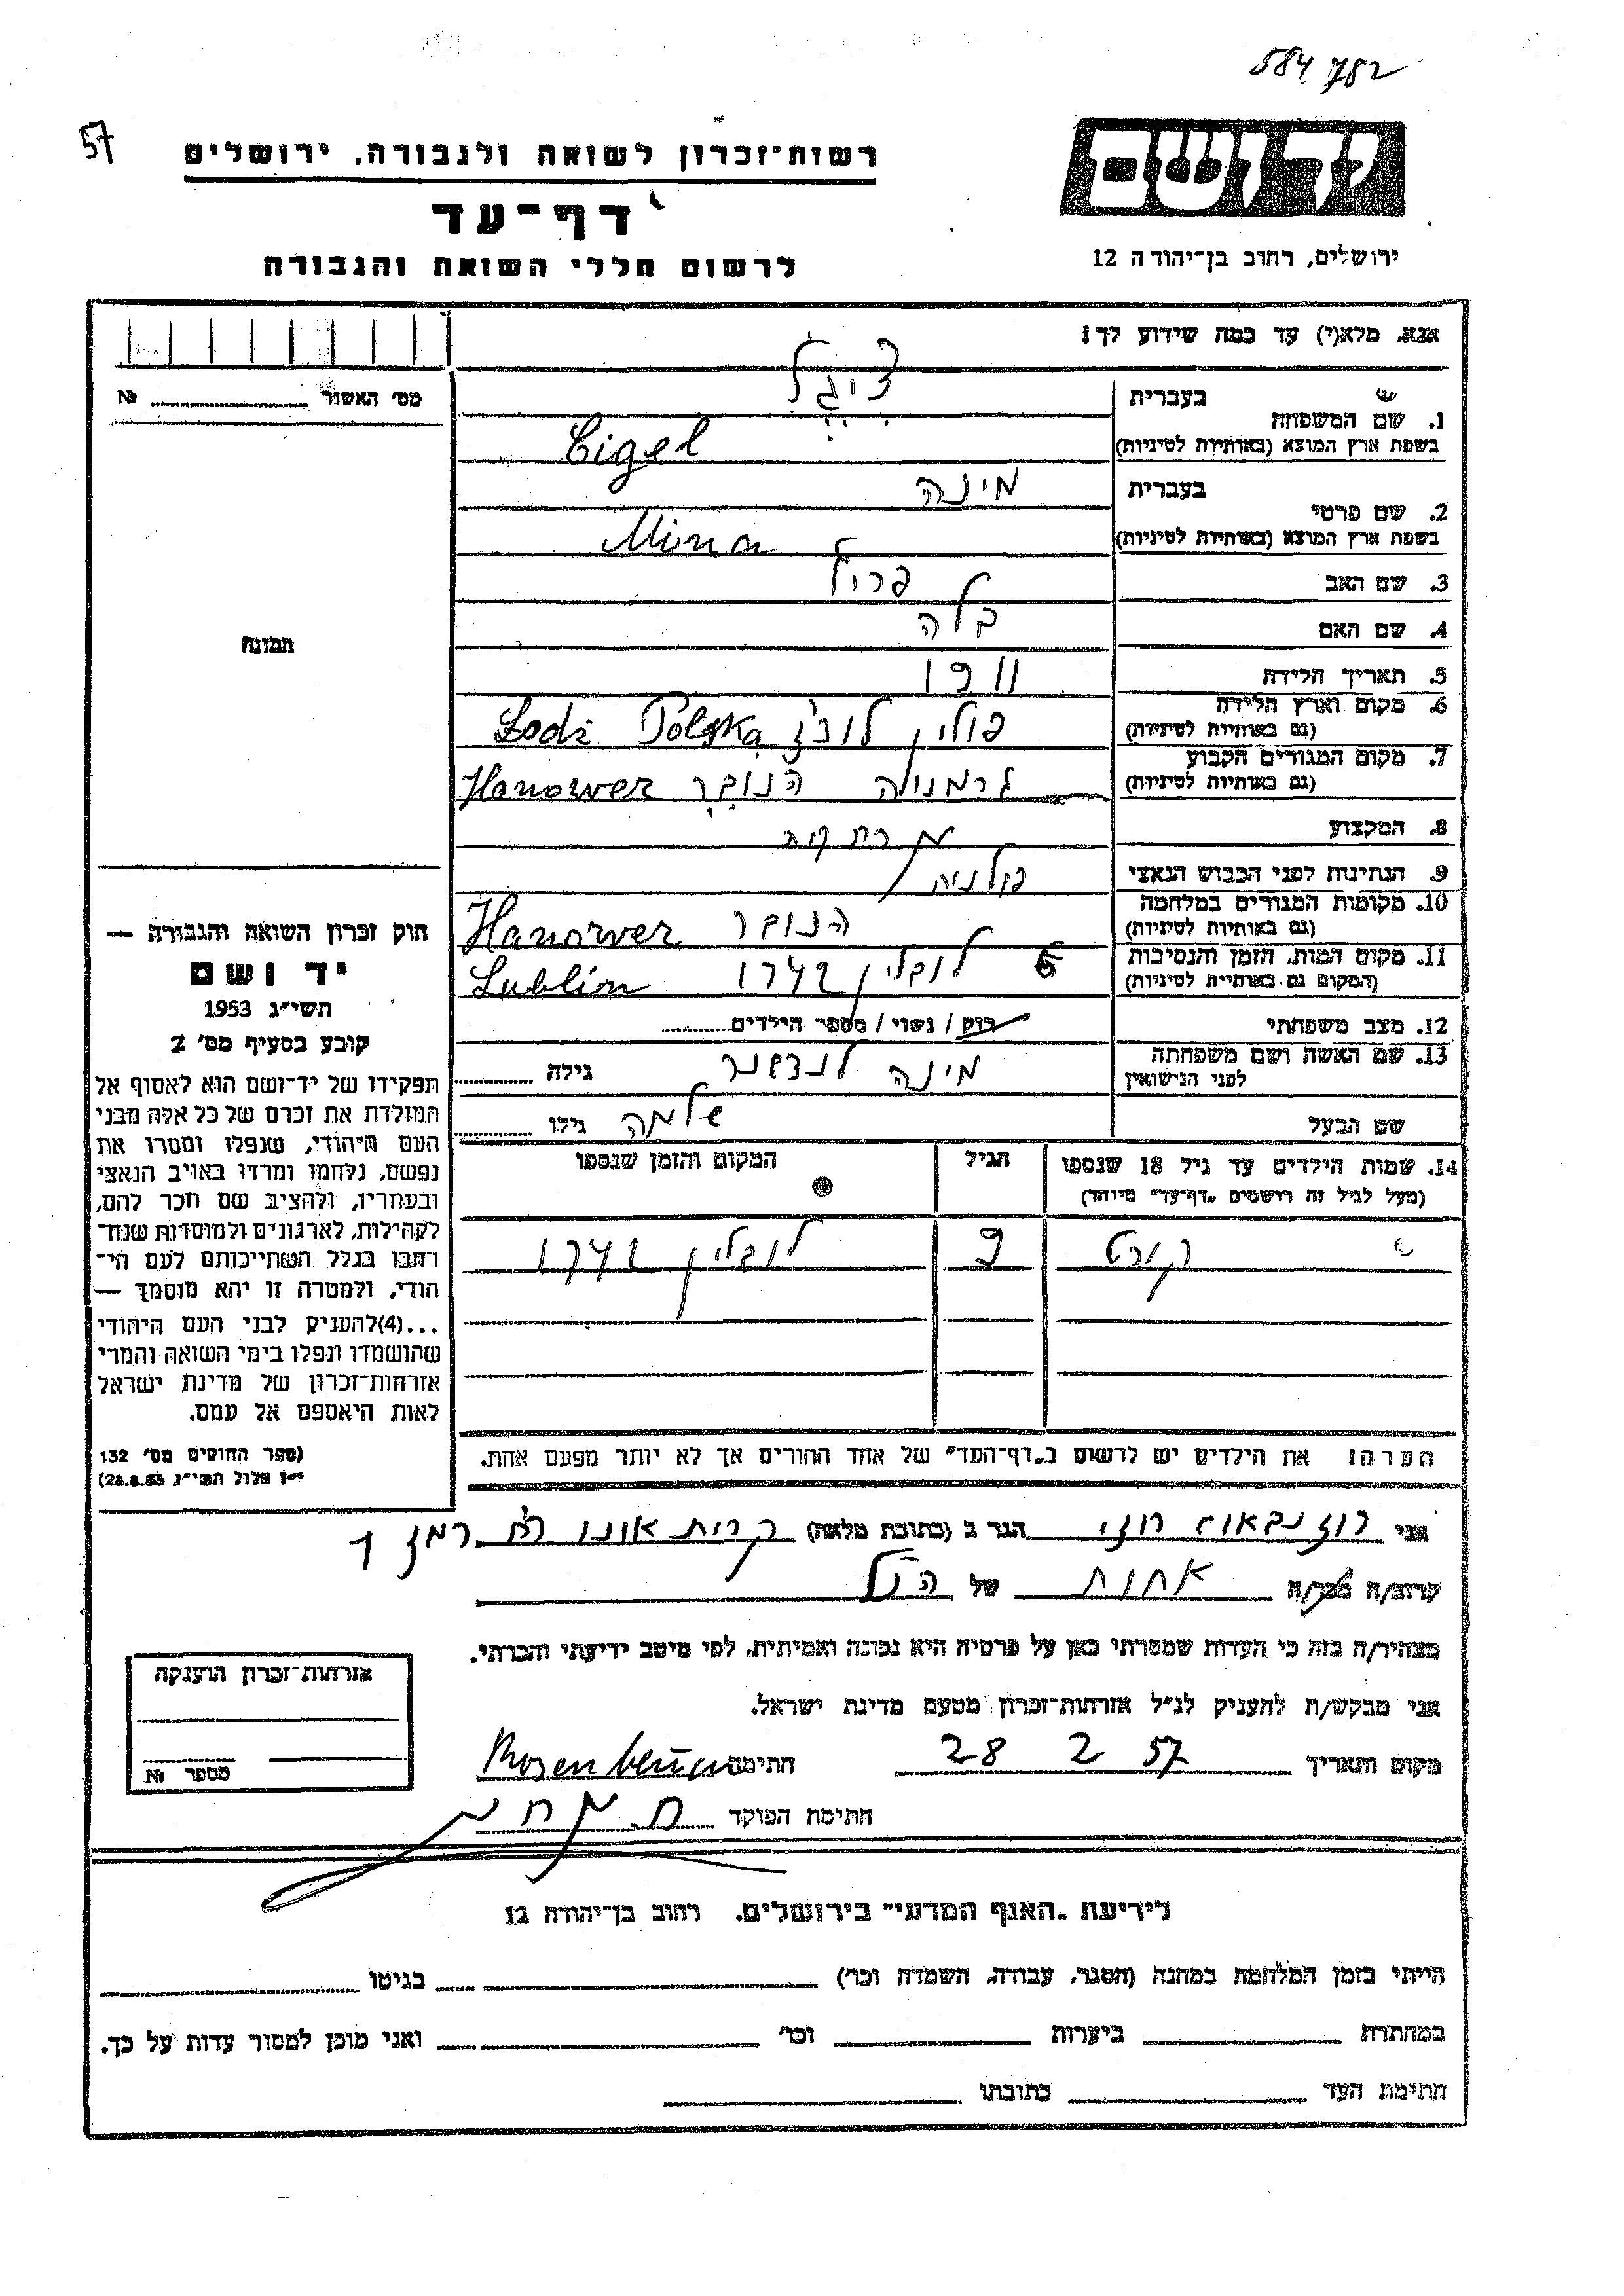 584782
57
יד ושם
רשות־זכרון לשואה ולגבורה, ירושלים
דף־עד
לרשום חללי השואה והגבורה
ירושלים, רחוב בן־יהודה 12
אנא, מלא(י) עד כמה שידוע לך!
מס׳ האשור № 
1. שם המשפחה
בעברית ציגל
בשפת ארץ המוצא (באותיות לטיניות) Cigel
2. שם פרטי
בעברית מינה
בשפת ארץ המוצא (באותיות לטיניות) Mina
3. שם האב
4. שם האם בלה
תמונה
5. תאריך הלידה 1911
6. מקום וארץ הלידה (גם באותיות לטיניות) פולין לודז Lodz Polska
7. מקום המגורים הקבוע (גם באותיות לטיניות) גרמניה הנובר Hanower
8. המקצוע
9. הנתינות לפני הכבוש הנאצי פולניה
10. מקומות המגורים במלחמה (גם באותיות לטיניות) הנובר Hanorwer
11. מקום המות, הזמן והנסיבות (המקום גם באותיות לטיניות) לובלין 1942 Lublin
12. מצב משפחתי רוק / נשוי / מספר הילדים
13. שם האשה ושם משפחתה לפני הנישואין מינה לנדסנר גילה
שם הבעל שלמה גילו
14. שמות הילדים עד גיל 18 שנספו (מעל לגיל זה רושמים „דף־עד” מיוחד)
הגיל
המקום והזמן שנספו
קורט 9 לובלין 1942
הערה: את הילדים יש לרשום ב„דף־העד” של אחד ההורים אך לא יותר מפעם אחת.
חוק זכרון השואה והגבורה —
יד ושם
תשי״ג 1953
קובע בסעיף מס׳ 2
תפקידו של יד־ושם הוא לאסוף אל
המולדת את זכרם של כל אלה מבני
העם היהודי, שנפלו ומסרו את
נפשם, נלחמו ומרדו באויב הנאצי
ובעוזריו, ולהציב שם וזכר להם,
לקהילות, לארגונים ולמוסדות שנח־
רבו בגלל השתייכותם לעם הי־
הודי, ולמטרה זו יהא מוסמך —
...(4) להעניק לבני העם היהודי
שהושמדו ונפלו בימי השואה והמרי
אזרחות־זכרון של מדינת ישראל
לאות היאספם אל עמם.
(ספר החוקים מס׳ 132
י״ז אלול תשי״ג 28.8.53)
אני רוזנבאום רוזי הגר ב (כתובת מלאה) קרית אונו רח רמז 1
קרוב/ה מכר/ה אחות של הנ״ל
מצהיר/ה בזה כי העדות שמסרתי כאן על פרטיה היא נכונה ואמיתית, לפי מיטב ידיעתי והכרתי.
אני מבקש/ת להעניק לנ״ל אזרחות־זכרון מטעם מדינת ישראל.
מקום ותאריך 28 2 57 חתימה Rosenbaum
חתימת הפוקד
אזרחות־זכרון הוענקה
מספר №
לידיעת „האגף המדעי” בירושלים, רחוב בן־יהודה 12
הייתי בזמן המלחמה במחנה (הסגר, עבודה, השמדה וכו׳) בגיטו
במחתרת ביערות וכו׳ ואני מוכן למסור עדות על כך.
חתימת העד כתובתו